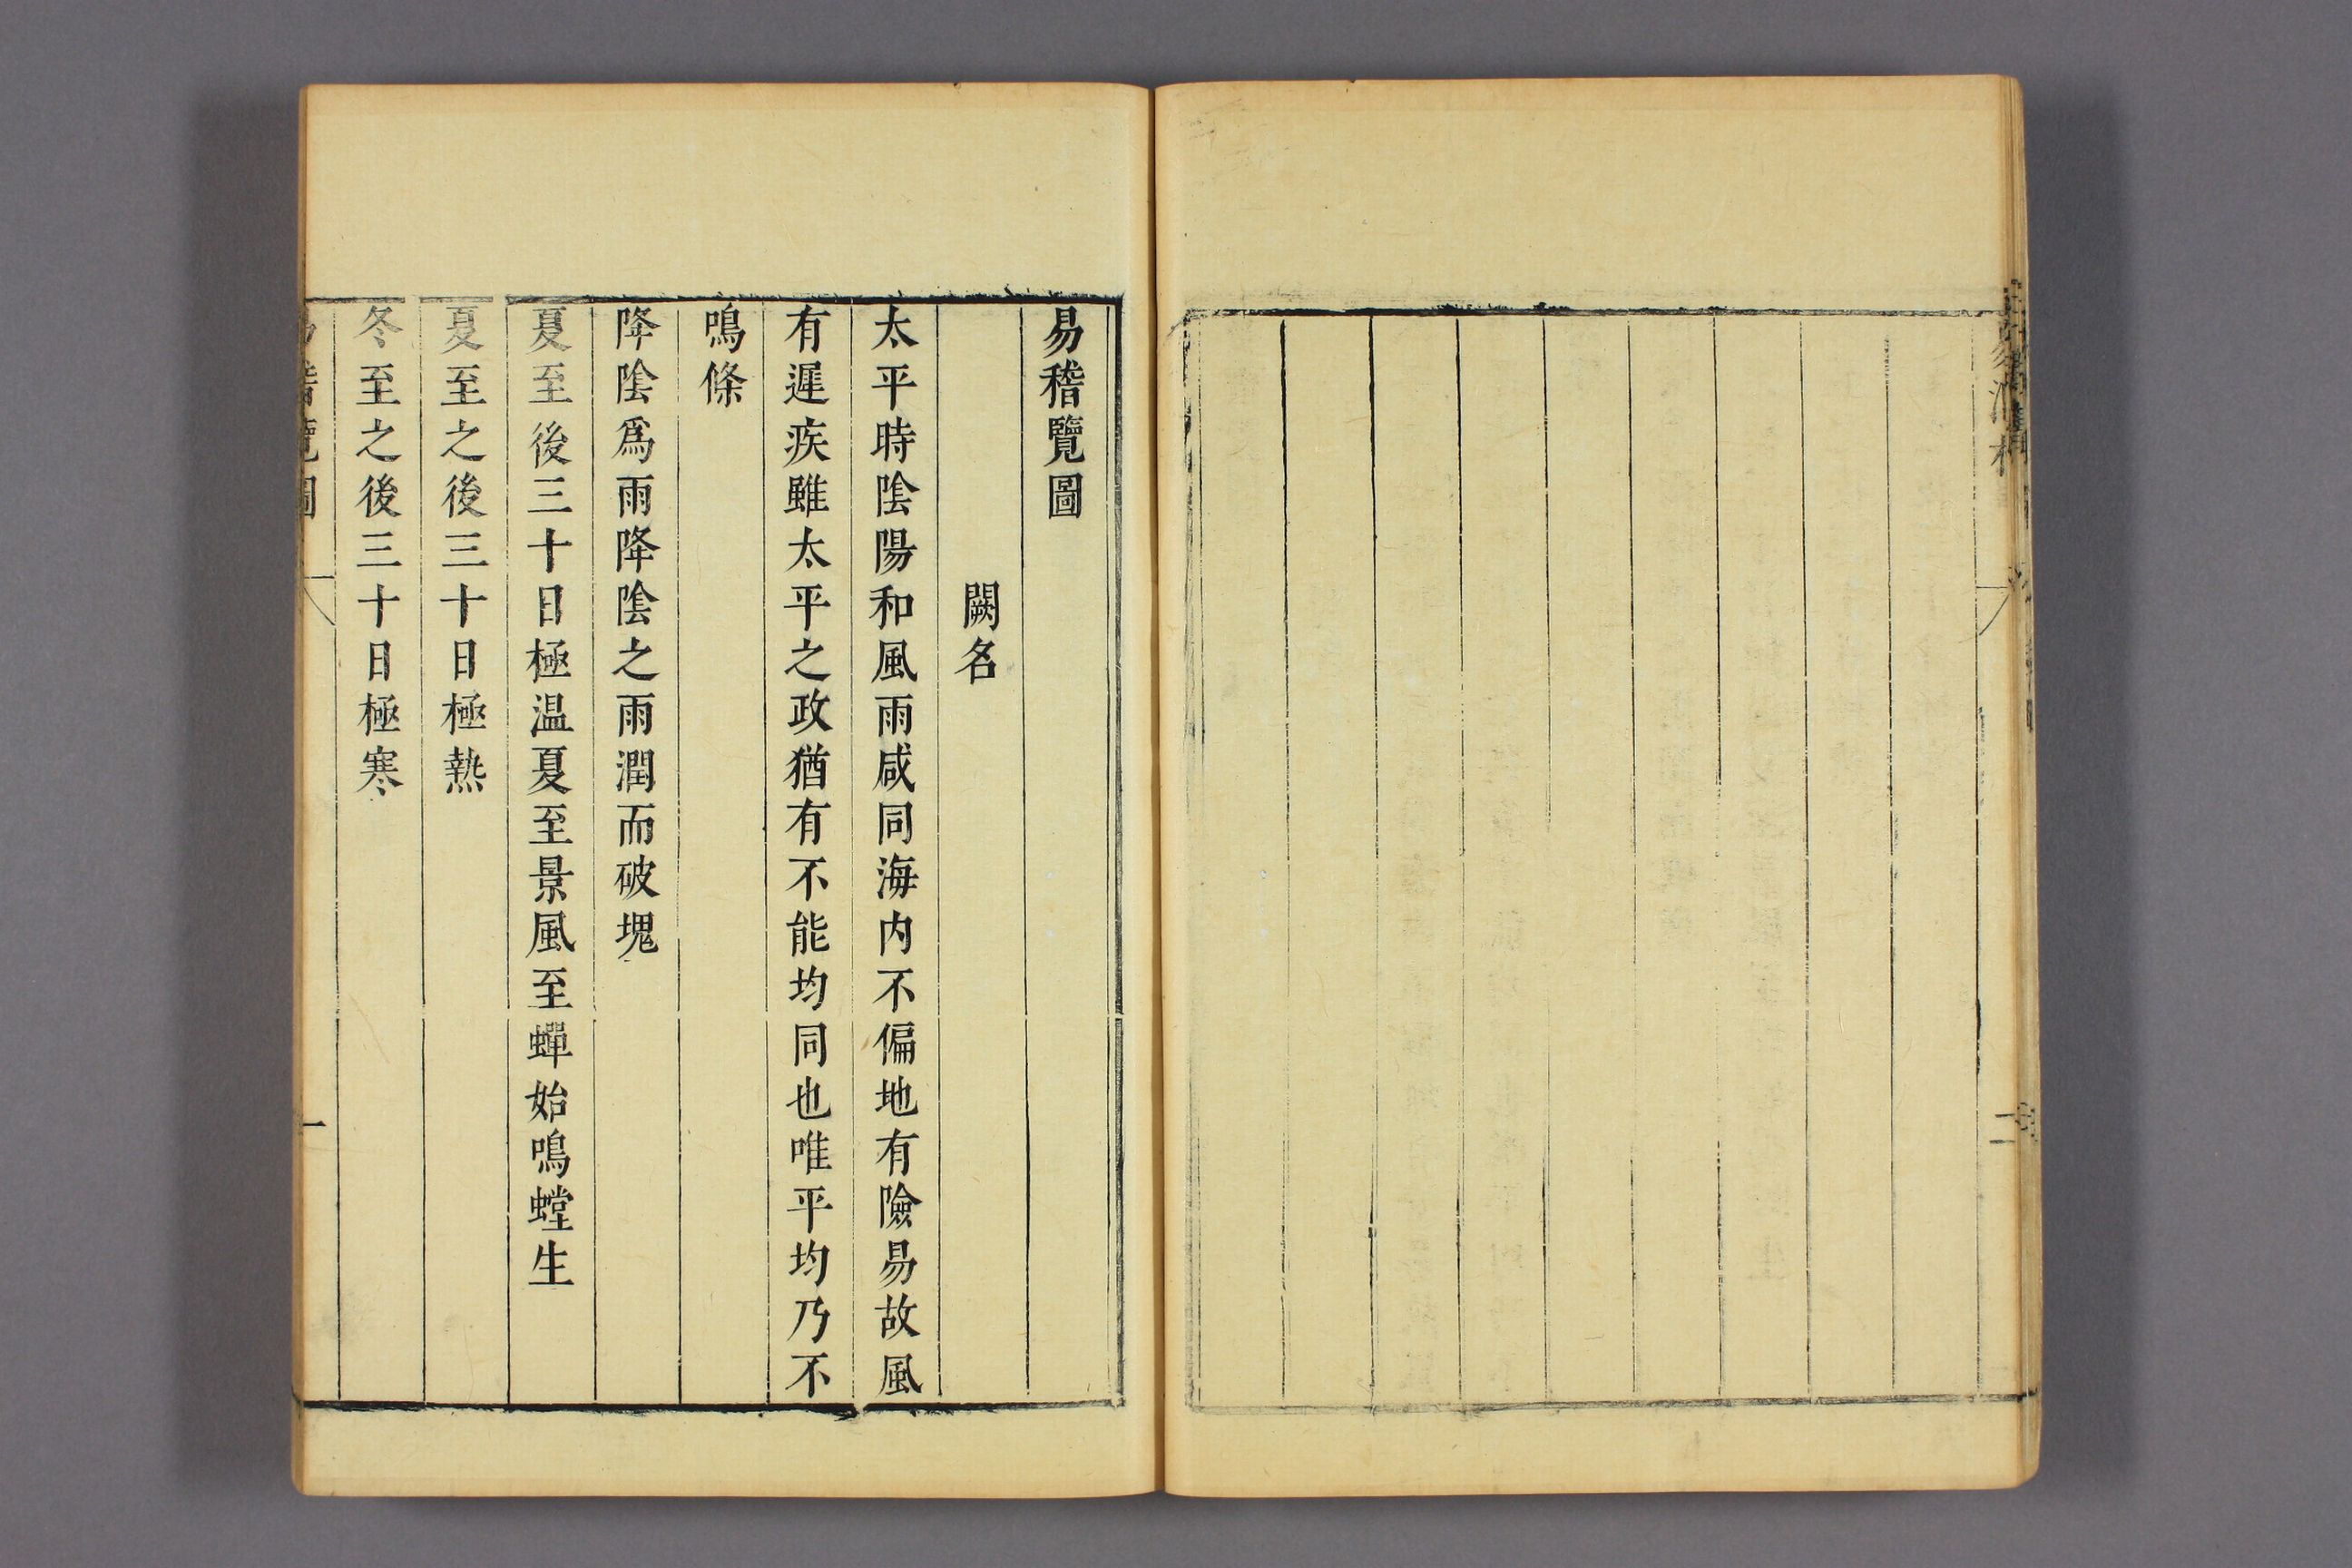 易稽覽圖
闕名
太平時陰陽和風雨咸同海內不偏地有險易故風
有遲疾雖太平之政猶有不能均同也唯平均乃不
鳴條
降陰爲雨降陰之雨潤而破塊
夏至後三十日極温夏至景風至蟬始鳴螳生
夏至之後三十日極熱
冬至之後三十日極寒
稽覽圖
一